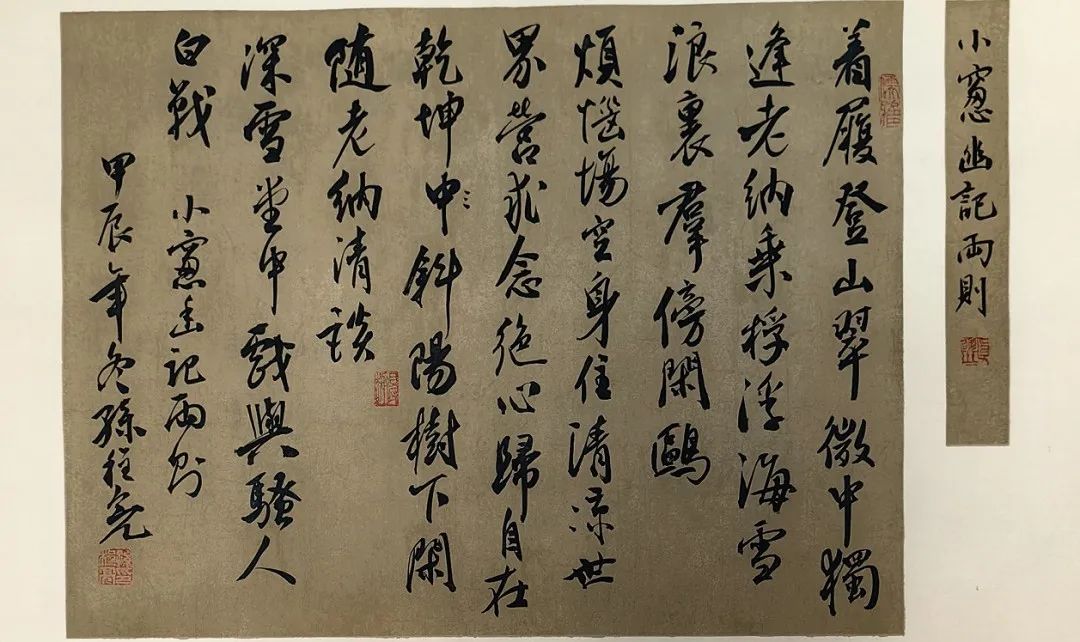 小窻幽記兩則
着履登山翠微中獨
逢老納乘桴浮海雪
浪裏羣傍閑鷗
煩惱場空身住清涼世
界營求念絕心歸自在
乾坤中斜陽樹下閑
随老納清談
深雪堂中戲與騷人
白戰
小窻幽記兩則
甲辰年冬孫